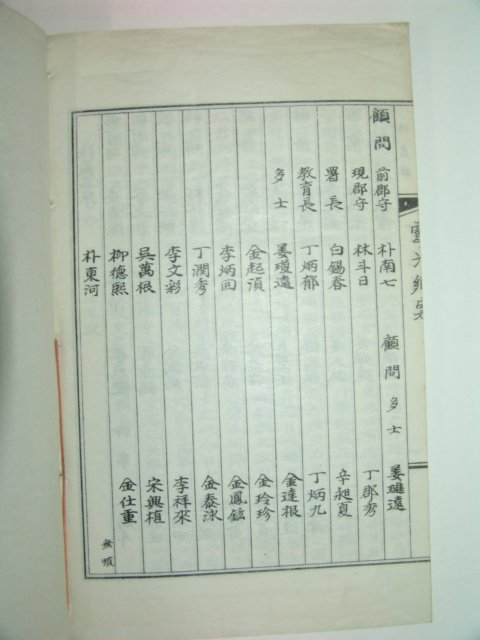 顧問 前郡守 朴南七 顧問 多士 姜璡遠
現郡守 林斗日 丁郡秀
署長 白錫春 辛昶夏
教育長 丁炳郁 丁炳九
多士 姜瓊遠 金達根
金起湏 金玲珍
李炳回 金鳳鉉
丁潤秀 金泰泳
李文彩 李祥來
吳萬根 宋興植
柳德熙 金仕重
朴東河 無順